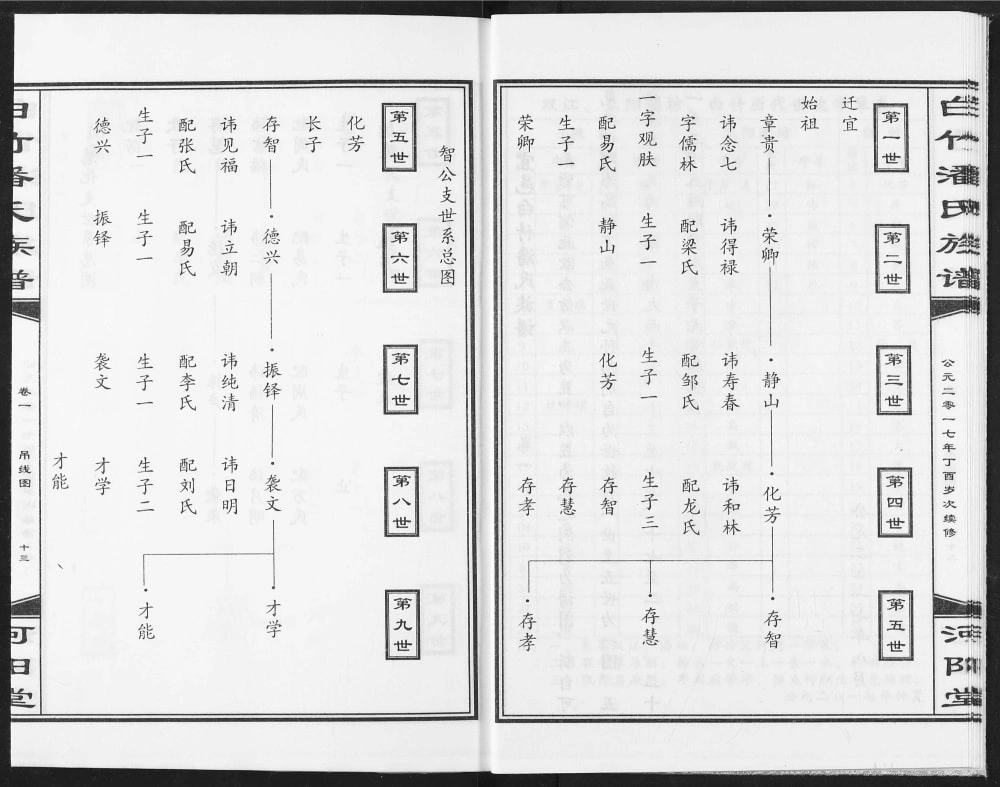 白竹潘氏族谱
公元二零一七年丁酉岁次续修
河阳堂
第一世
第二世
第三世
第四世
第五世
迁宜
始祖
章贵
荣卿
静山
化芳
存智
存慧
存孝
讳念七
讳得禄
讳寿春
讳和林
字儒林
配梁氏
配邹氏
配龙氏
一字观肤
生子一
生子一
生子三
配易氏
静山
化芳
存智
生子一
存慧
荣卿
存孝
智公支世系总图
第五世
第六世
第七世
第八世
第九世
化芳
长子
存智
德兴
振铎
袭文
才学
才能
讳见福
讳立朝
讳纯清
讳日明
配张氏
配易氏
配李氏
配刘氏
生子一
生子一
生子一
生子二
德兴
振铎
袭文
才学
才能
白竹潘氏族谱
卷一
吊线图
十三
河阳堂